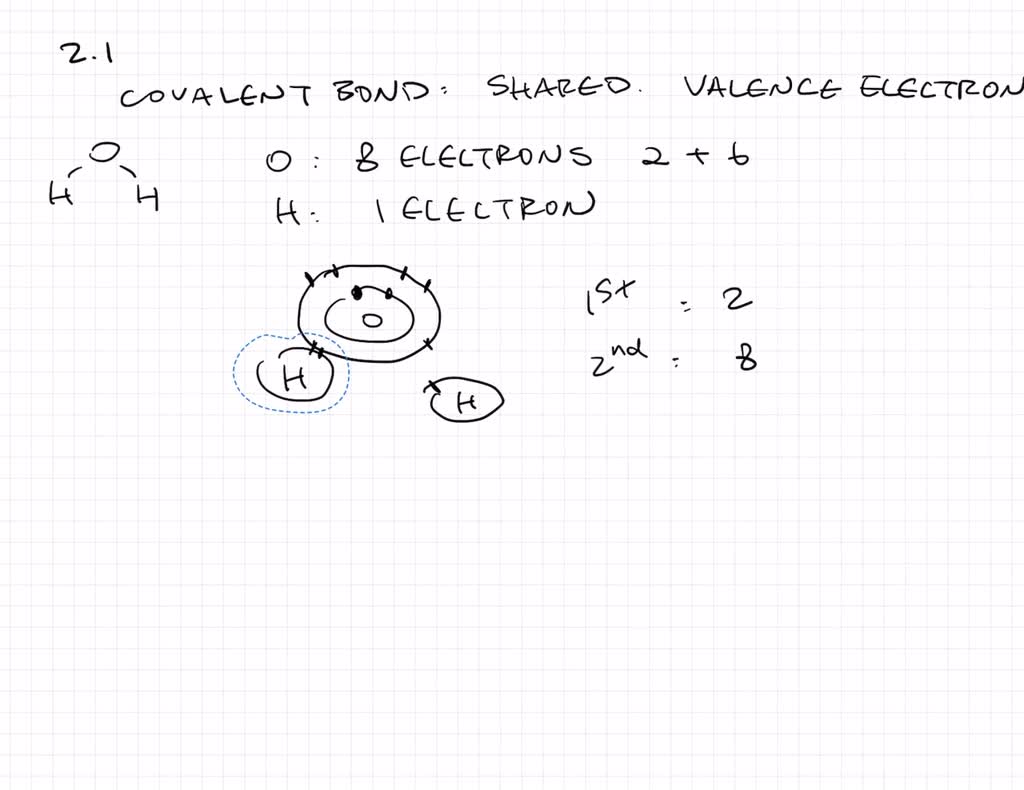 2.1
COVALENT BOND: SHARED. VALENCE ELECTRON
O
H H
O: 8 ELECTRONS 2 + 6
H: 1 ELECTRON
O
H
H
1st = 2
2nd = 8